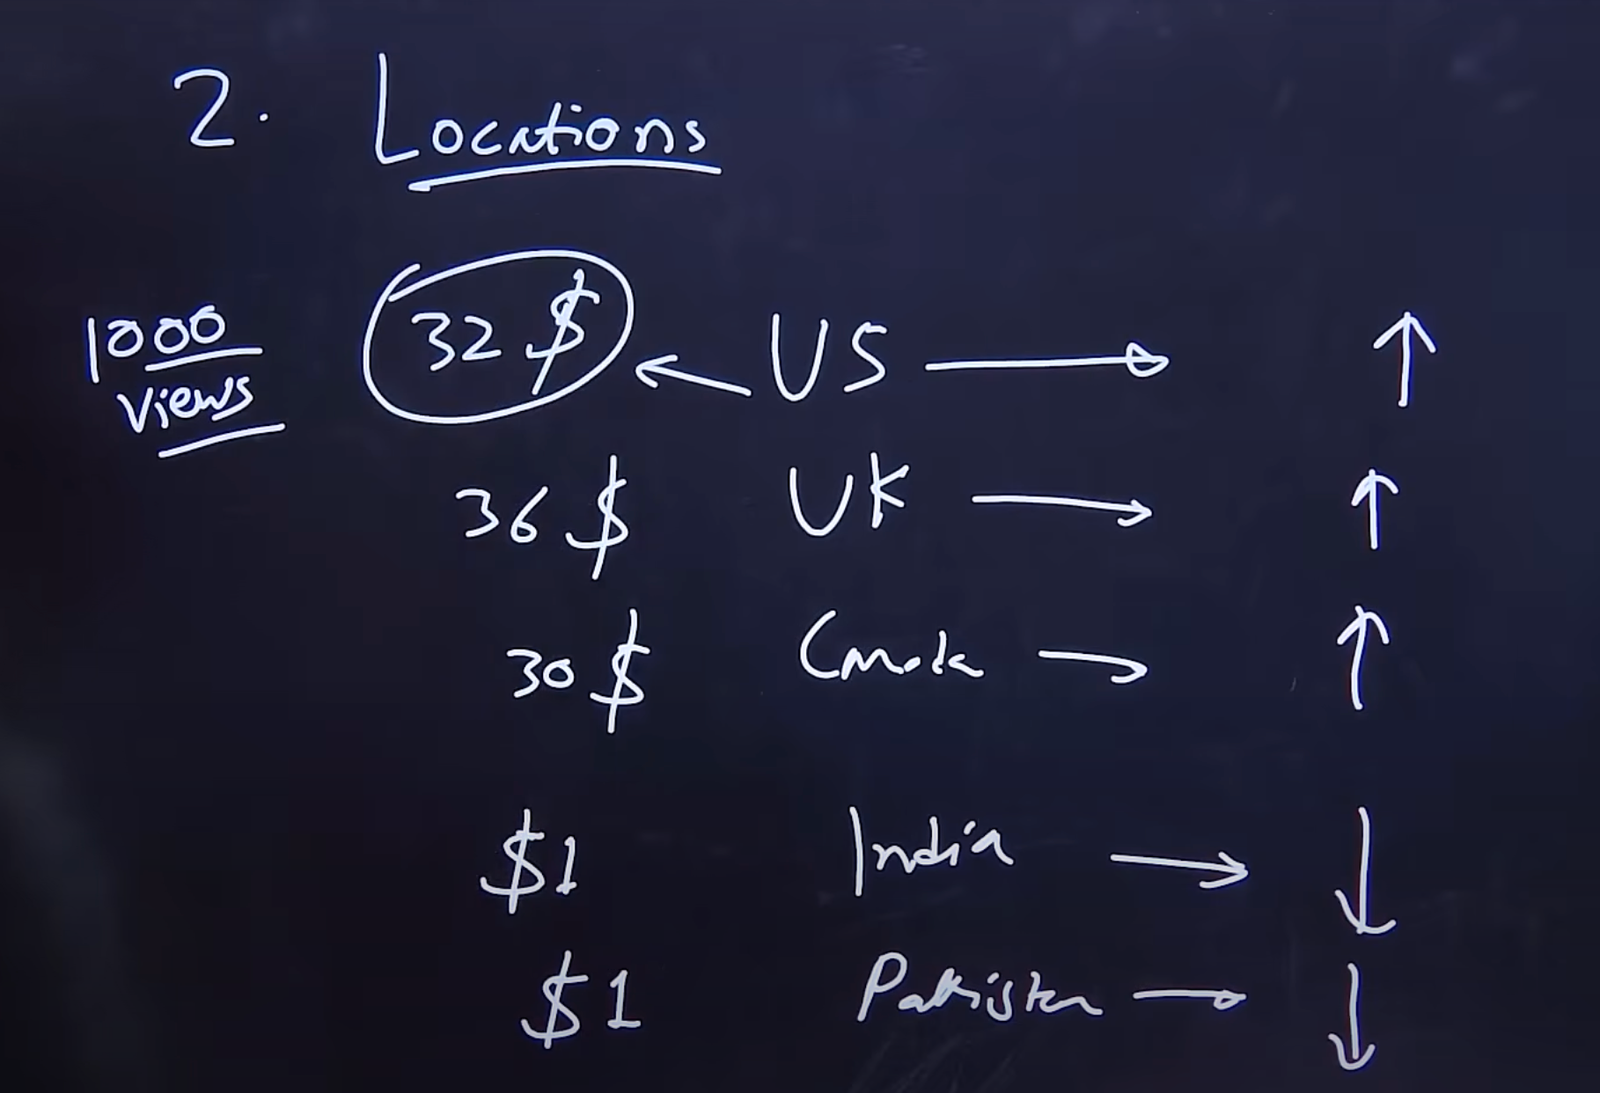 2. Locations
1000 32 $ ← US → ↑
views
36 $ UK → ↑
30 $ Canada → ↑
$1 India → ↓
$1 Pakistan → ↓